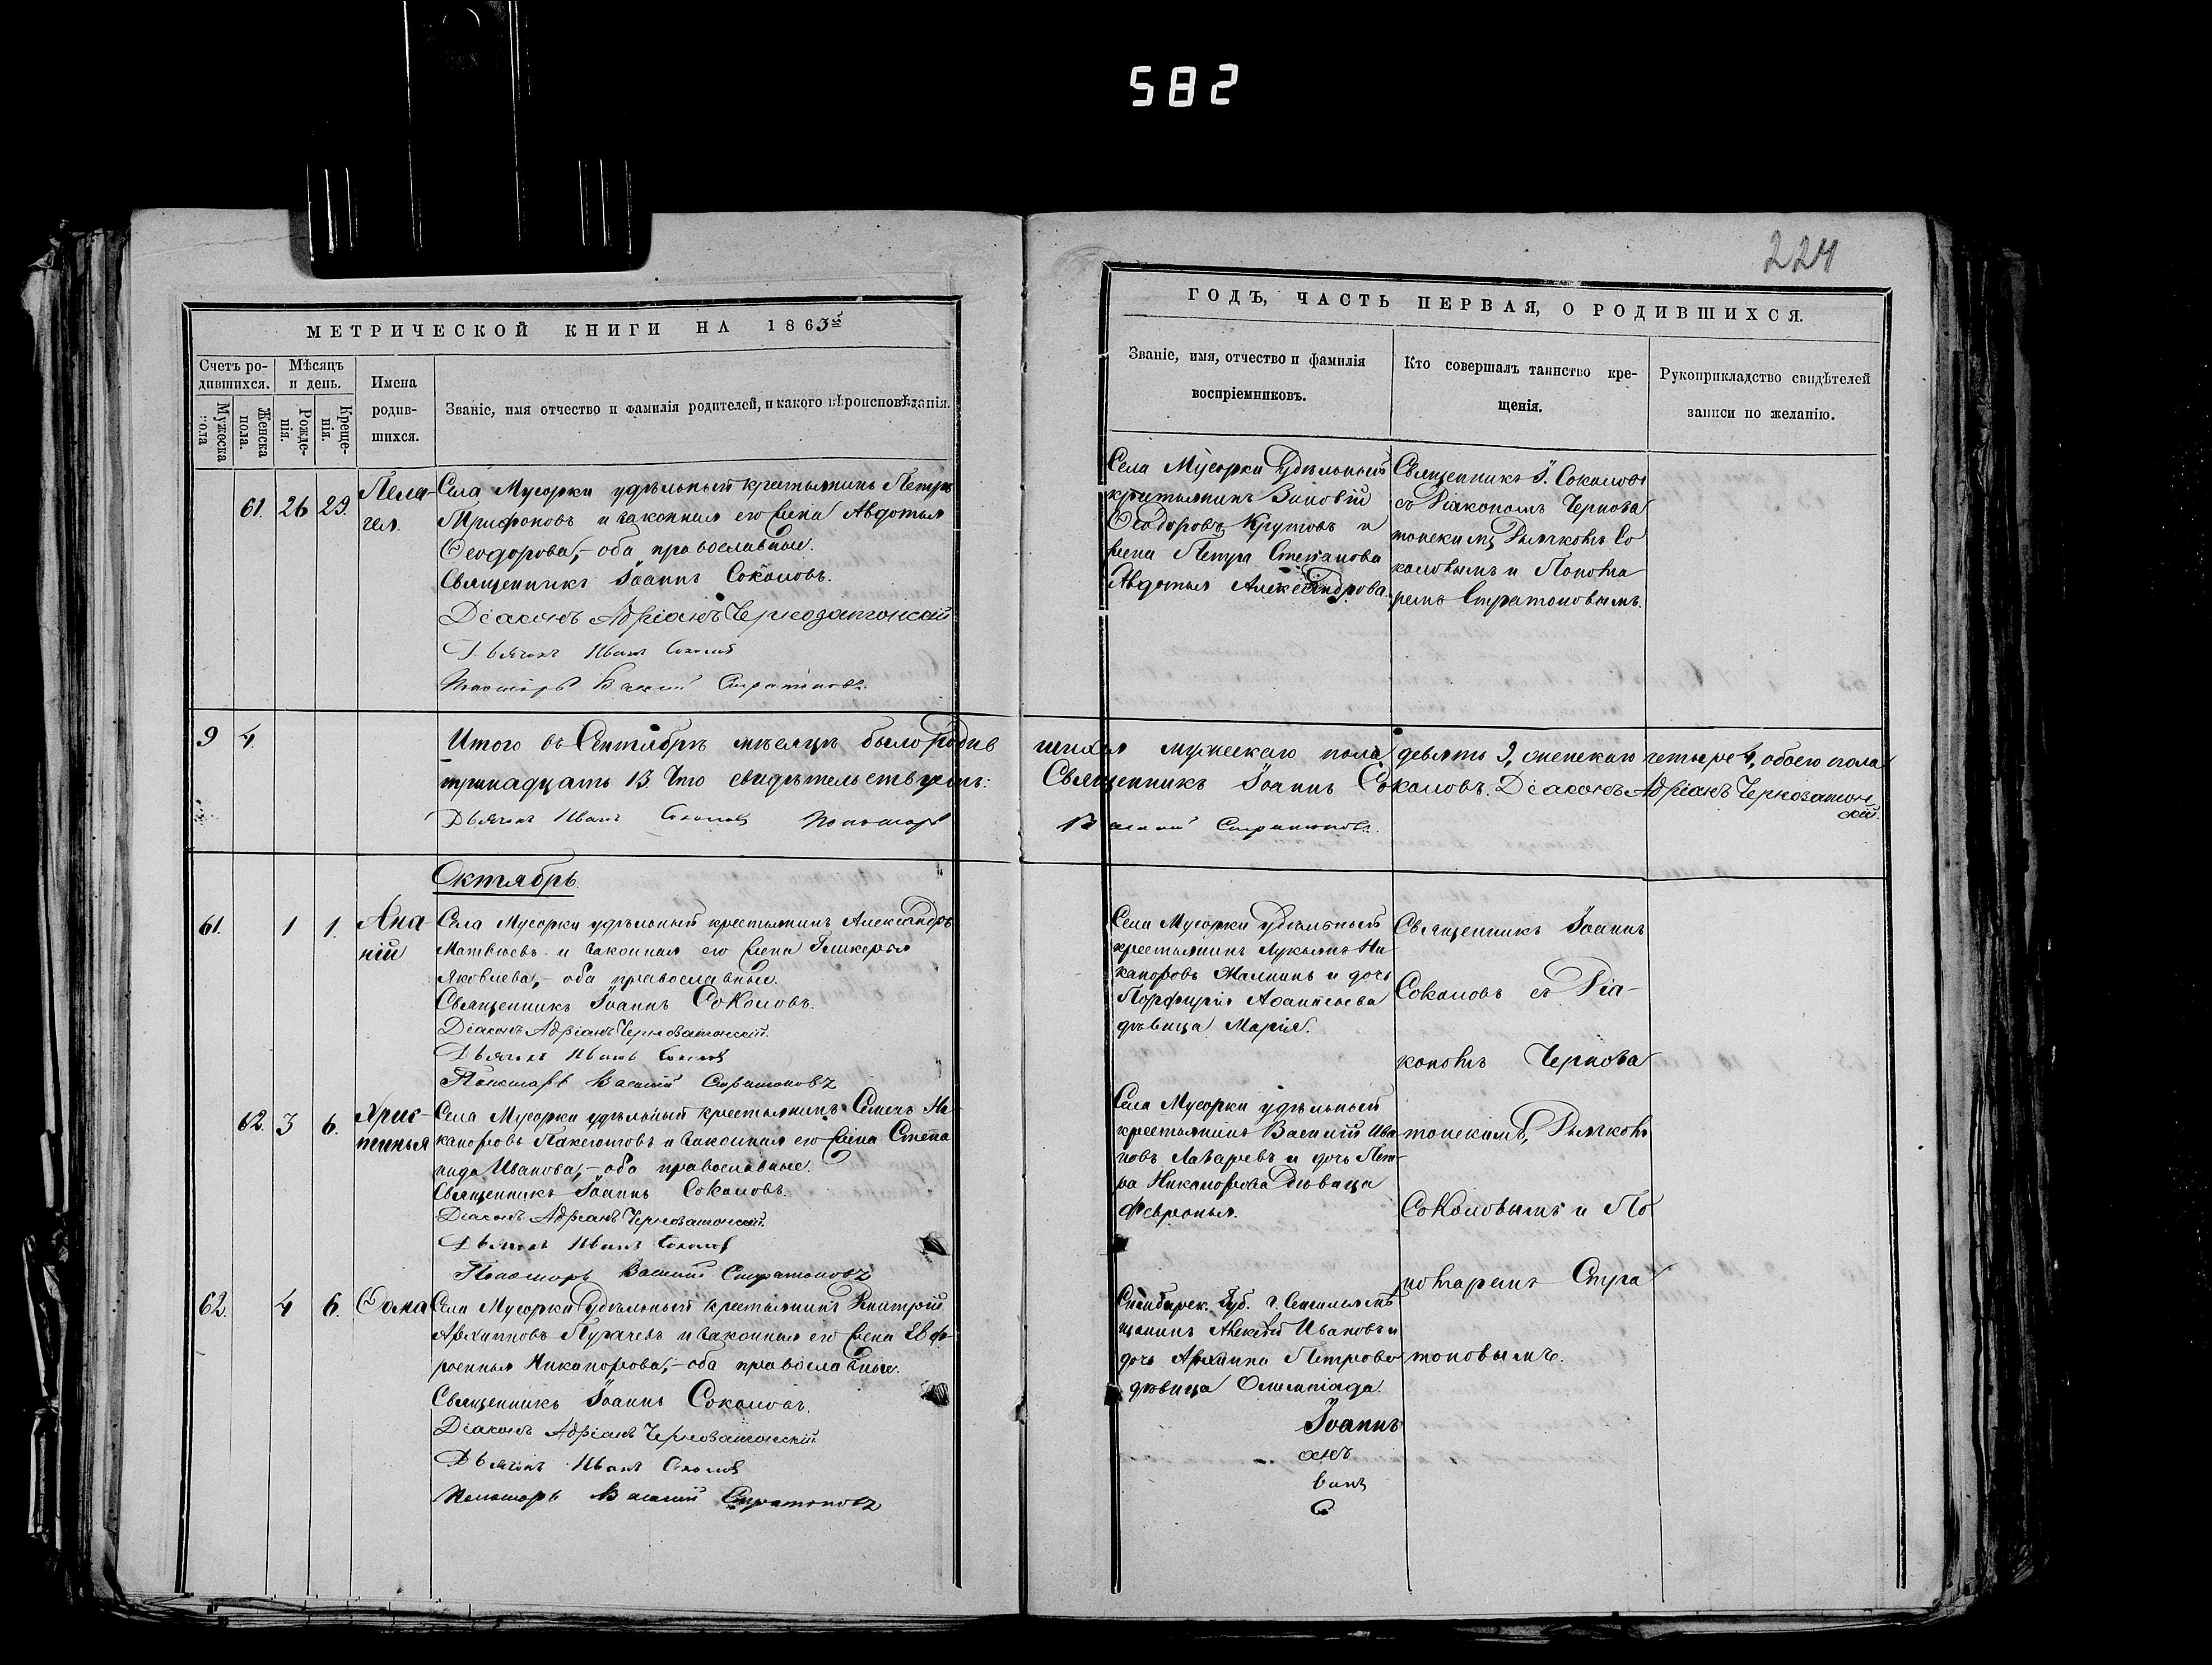 582
224
МЕТРИЧЕСКОЙ КНИГИ НА 1863
ГОДЪ, ЧАСТЬ ПЕРВАЯ, О РОДИВШИХСЯ.
Счетъ ро-
дившихся.
Мужеска пола
Женска пола.
Мѣсяцъ
и день.
Рожде-
нія.
Креще-
нія.
Имена
родив-
шихся.
Званіе, имя отчество и фамилія родителей, и какого вѣроисповѣданія.
Званіе, имя, отчество и фамилія
воспріемниковъ.
Кто совершалъ таинство кре-
щенія.
Рукоприкладство свидѣтелей
записи по желанію.
61. 26 29. Пела- Села Мусорки удѣльный крестьянинъ Петръ
гея. и законная его жена Авдотья
Ѳеодорова, – оба православные.
Священникъ Іоаннъ Соколовъ.
Діаконъ Адріанъ Чернозатонскій
Дьячокъ Иванъ Соколовъ
Пономарь Василій Стратоновъ.
Села Мусорки Удѣльный
крестьянинъ Зиновій
Ѳеодоровъ Крутовъ и
жена Петра Степанова
Авдотья Александрова.
Священникъ І. Соколовъ
со Діакономъ Черноза
тонскимъ, Дьячкомъ Со
коловымъ и Понома
ремъ Стратоновымъ.
9 4. Итого въ Сентябрѣ мѣсяцѣ было родив шихся мужескаго пола девять 9, женскаго четыре 4, обоего пола
тринадцать 13. Что свидѣтельствуемъ: Священникъ Іоаннъ Соколовъ. Діаконъ Адріанъ Чернозатон
скій.
Дьячокъ Иванъ Соколовъ Пономарь Василій Стратоновъ.
Октябрь.
61. 1 1. Ана- Села Мусорки удѣльный крестьянинъ Александръ
ній Матвѣевъ и законная его жена Гликерья
Яковлева, – оба православные.
Священникъ Іоаннъ Соколовъ.
Діаконъ Адріанъ Чернозатонскій.
Дьячокъ Иванъ Соколовъ
Пономарь Василій Стратоновъ
Села Мусорки удѣльный
крестьянинъ Лукьянъ Ни
каноровъ и дочь
Порфирія Аѳанасьева
дѣвица Марія.
62. 3 6. Хрис- Села Мусорки удѣльный крестьянинъ Семенъ Ни
тинья каноровъ и законная его жена Степа
нида Иванова, – оба православные.
Священникъ Іоаннъ Соколовъ.
Діаконъ Адріанъ Чернозатонскій.
Дьячокъ Иванъ Соколовъ
Пономарь Василій Стратоновъ
Села Мусорки удѣльный
крестьянинъ Василій Ива
новъ Лазаревъ и дочь Пет-
ра Никанорова Дѣвица
Февронья.
62. 4 6. Ѳома Села Мусорки Удѣльный крестьянинъ Дмитрій
Архиповъ Пугачевъ и законная его жена Евф-
росинья Никанорова, – оба православные.
Священникъ Іоаннъ Соколовъ.
Діаконъ Адріанъ Чернозатонскій
Дьячокъ Иванъ Соколовъ
Пономарь Василій Стратоновъ
Симбирск. Губ. г. Сенгилея мѣ
щанинъ Алексѣй Ивановъ и
дочь Архипа Петрова
дѣвица Олимпіада.
Іоаннъ
онъ
ванъ
С
Священникъ Іоаннъ
Соколовъ съ Діа-
кономъ Черноза
тонскимъ, Дьячкомъ
Соколовымъ и По
номаремъ Стра
тоновымъ.